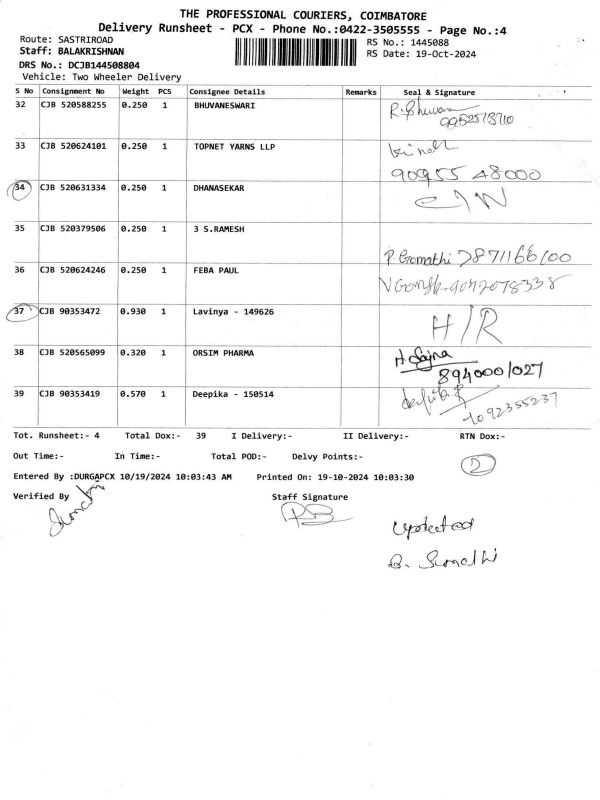 THE PROFESSIONAL COURIERS, COIMBATORE
Delivery Runsheet - PCX - Phone No.:0422-3505555 - Page No.:4
Route: SASTRIROAD
RS No.: 1445088
Staff: BALAKRISHNAN
RS Date: 19-Oct-2024
DRS No.: DCJB144508804
Vehicle: Two Wheeler Delivery
S No Consignment No Weight PCS Consignee Details Remarks Seal & Signature
32 CJB 520588255 0.250 1 BHUVANESWARI
33 CJB 520624101 0.250 1 TOPNET YARNS LLP
90955 48000
34 CJB 520631334 0.250 1 DHANASEKAR
35 CJB 520379506 0.250 1 3 S.RAMESH
P. Gomathi 7871166100
36 CJB 520624246 0.250 1 FEBA PAUL
37 CJB 90353472 0.930 1 Lavinya - 149626
H/R
38 CJB 520565099 0.320 1 ORSIM PHARMA
H Sajna
8940001027
39 CJB 90353419 0.570 1 Deepika - 150514
Tot. Runsheet:- 4 Total Dox:- 39 I Delivery:- II Delivery:- RTN Dox:-
Out Time:- In Time:- Total POD:- Delvy Points:-
2
Entered By :DURGAPCX 10/19/2024 10:03:43 AM Printed On: 19-10-2024 10:03:30
Verified By Staff Signature
Sumathi
Updated
B. Sumathi